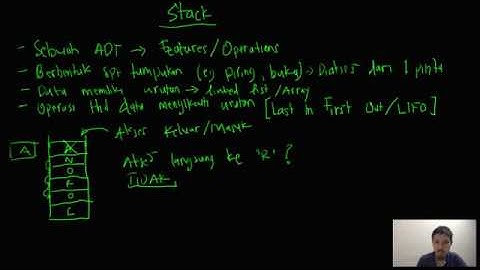 Stack
- Sebuah ADT → Features/Operations
- Berbentuk spt tumpukan (e.g piring, buku) → Diakses dari 1 pintu
- Data memiliki urutan → linked list/Array
- Operasi thd data mengikuti urutan [Last in First Out/LIFO]
Akses keluar/Masuk
A
A
N
O
F
O
L
Akses langsung ke 'R' ?
TIDAK